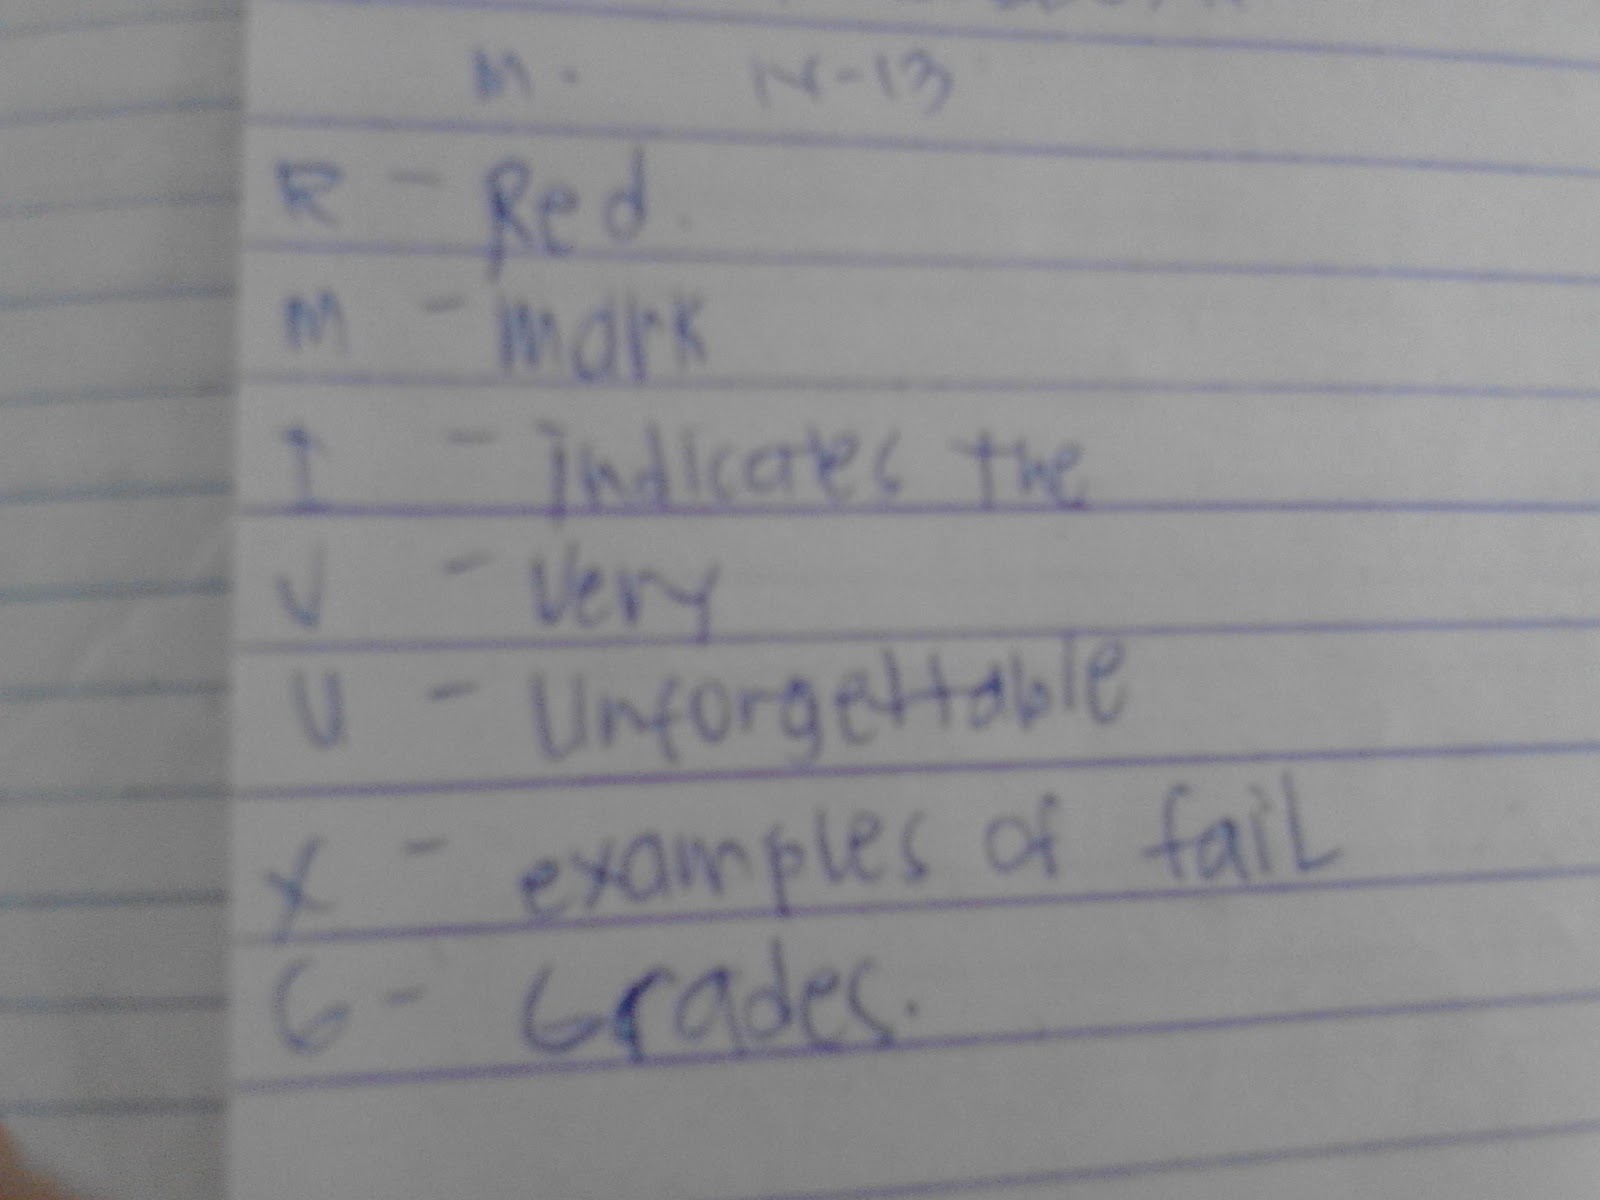 M. N-13
R - Red.
M - Mark
I - Indicates the
V - Very
U - Unforgettable
X - examples of fail
G - Grades.